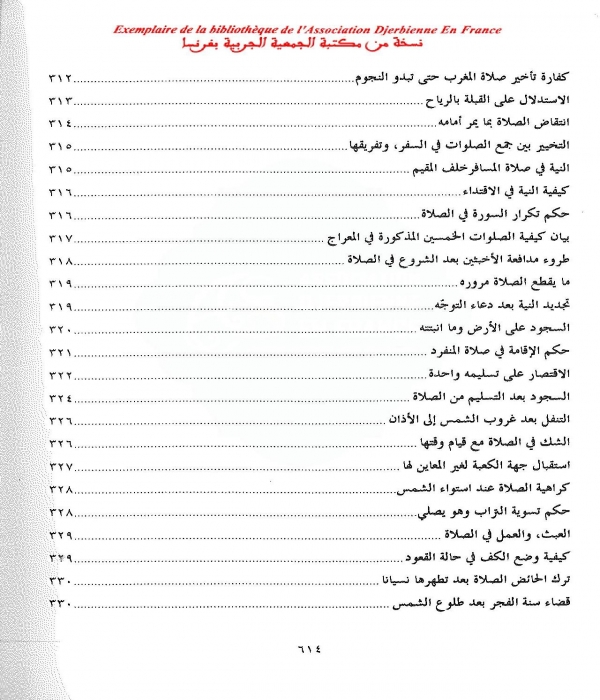 Exemplaire de la bibliothèque de l'Association Djerbienne En France
نسخة من مكتبة الجمعية الجربية بفرنسا
كفارة تأخير صلاة المغرب حتى تبدو النجوم ٣١٢
الاستدلال على القبلة بالرياح ٣١٣
انتقاض الصلاة بما يمر أمامه ٣١٤
التخيير بين جمع الصلوات في السفر، وتفريقها ٣١٥
النية في صلاة المسافر خلف المقيم ٣١٥
كيفية النية في الاقتداء ٣١٦
حكم تكرار السورة في الصلاة ٣١٦
بيان كيفية الصلوات الخمسين المذكورة في المعراج ٣١٧
طروء مدافعة الأخبثين بعد الشروع في الصلاة ٣١٨
ما يقطع الصلاة مروره ٣١٩
تجديد النية بعد دعاء التوجّه ٣١٩
السجود على الأرض وما انبتته ٣٢٠
حكم الإقامة في صلاة المنفرد ٣٢١
الاقتصار على تسليمه واحدة ٣٢٢
السجود بعد التسليم من الصلاة ٣٢٤
التنفل بعد غروب الشمس إلى الأذان ٣٢٦
الشك في الصلاة مع قيام وقتها ٣٢٦
استقبال جهة الكعبة لغير المعاين لها ٣٢٧
كراهية الصلاة عند استواء الشمس ٣٢٨
حكم تسوية التراب وهو يصلي ٣٢٨
العبث، والعمل في الصلاة ٣٢٩
كيفية وضع الكف في حالة القعود ٣٢٩
ترك الحائض الصلاة بعد تطهرها نسيانا ٣٣٠
قضاء سنة الفجر بعد طلوع الشمس ٣٣٠
٦١٤